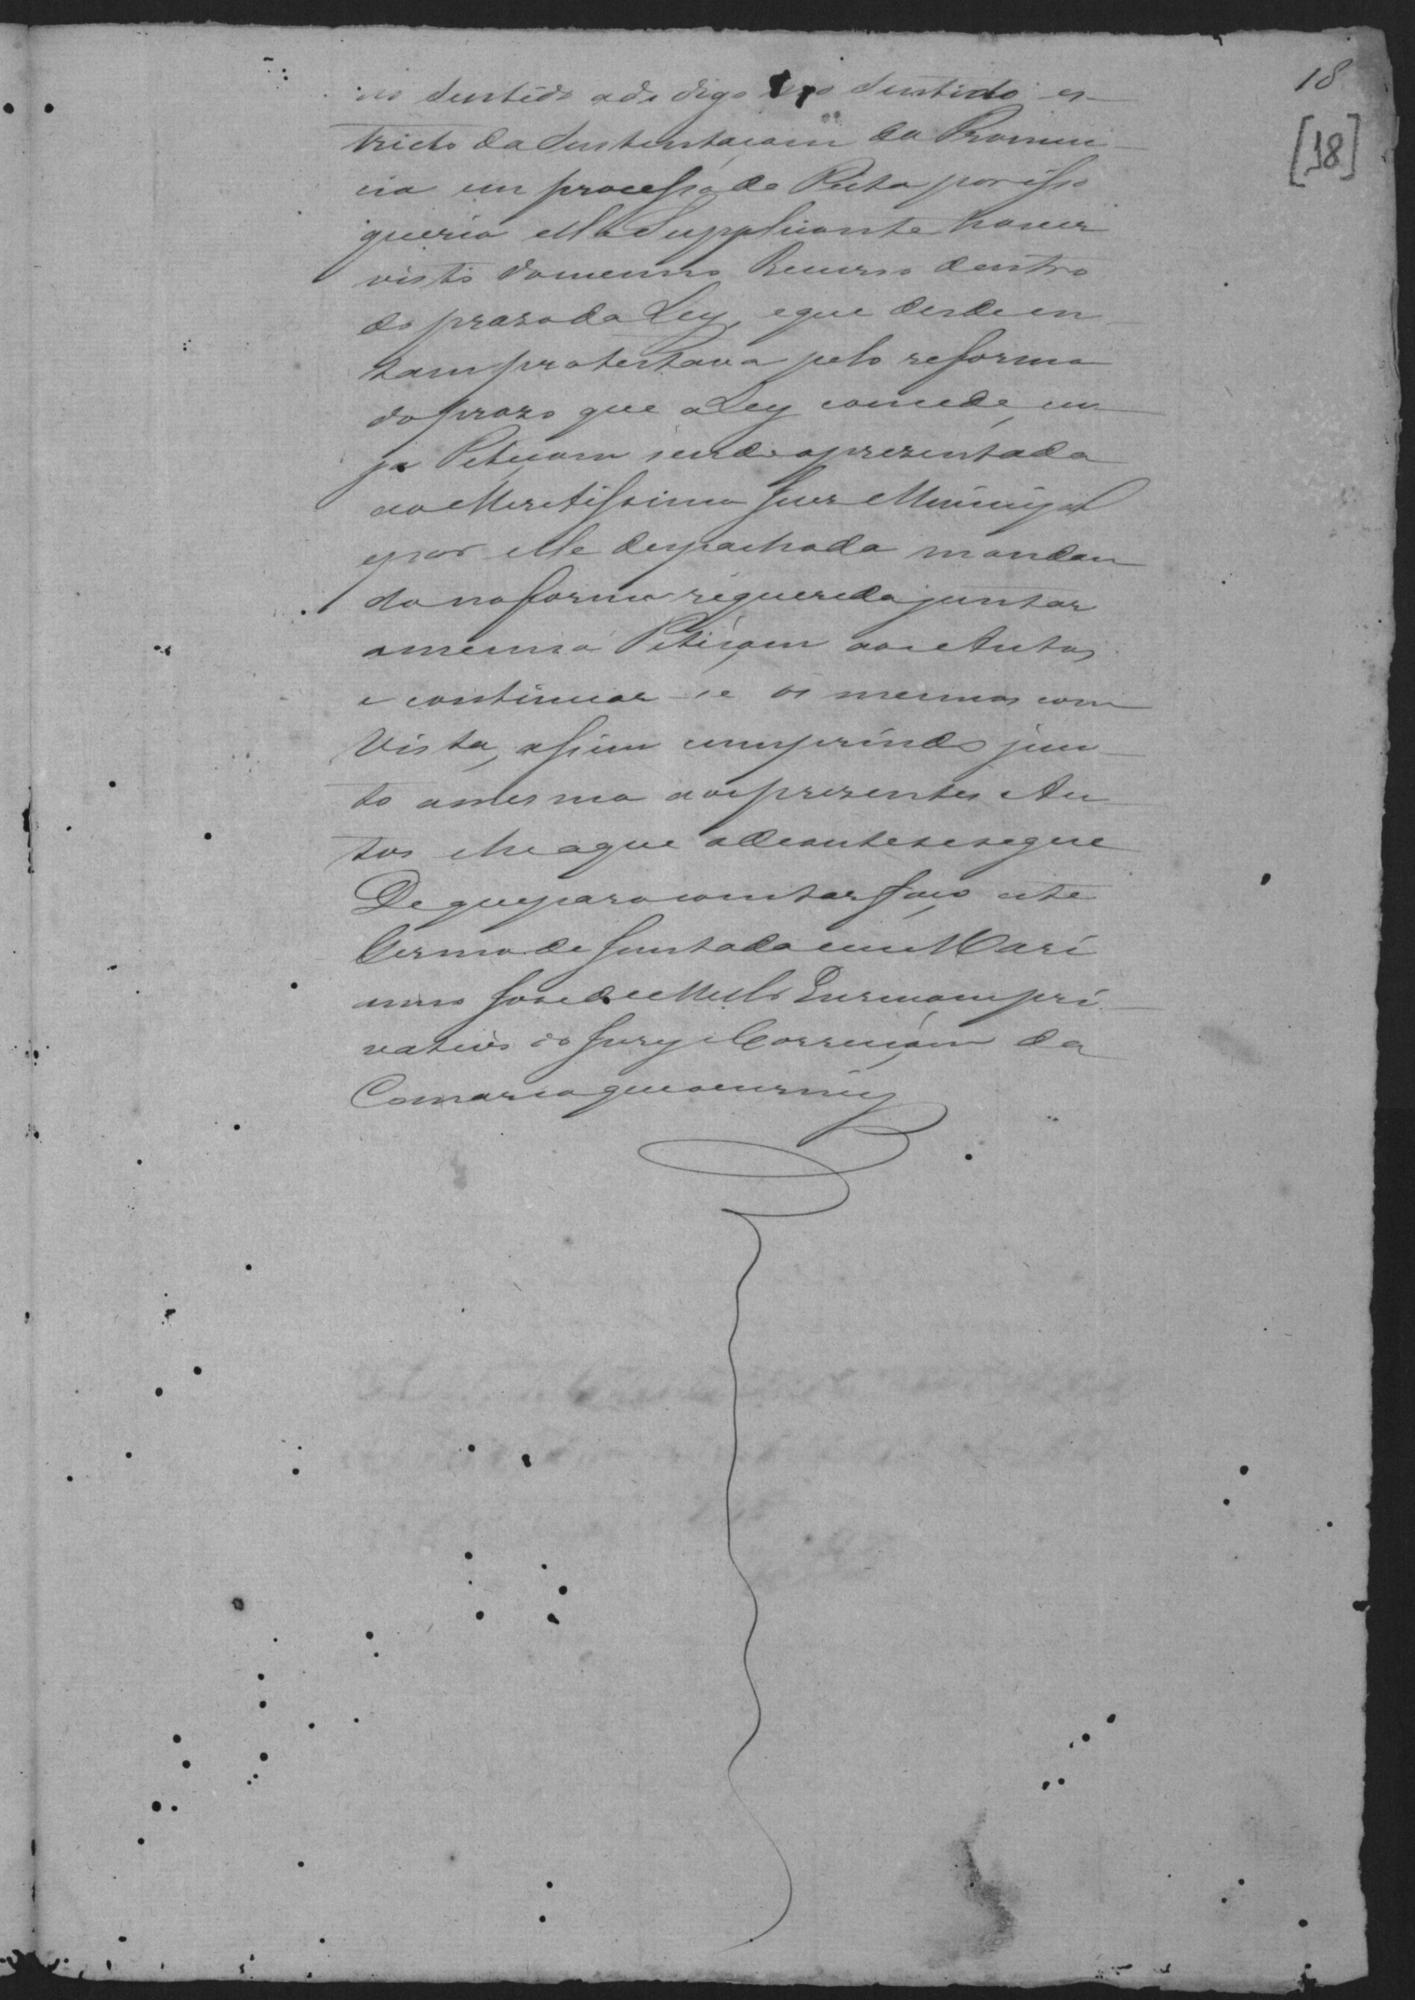 18
[18]
no sentido ads digo no sentido es
tricto da Sustentaçam da Pronun
cia em processo de Reita por isso
queria ella Supplicante haver
vista do mesmo Recurso dentro
do praso da Ley, e que desde en
tam protestava pelo reforma
do prazo que a Ley concede, cu
ja Petiçam sendo aprezentada
ao Meretissimo Juiz Municipal
e por elle despachada mandan
do na forma requerida juntar
a mesma Petiçam aos Autos
e continuar-se os mesmos com
Vista, assim cumprindo jun
to a mesma aos prezentes Au
tos he a que adeante se segue
De que para constar faço este
termo de Juntada eu Mari
anno Jose de Mello Escrivam pri
vativo do Jury e Correiçam da
Comarca que o escrevy